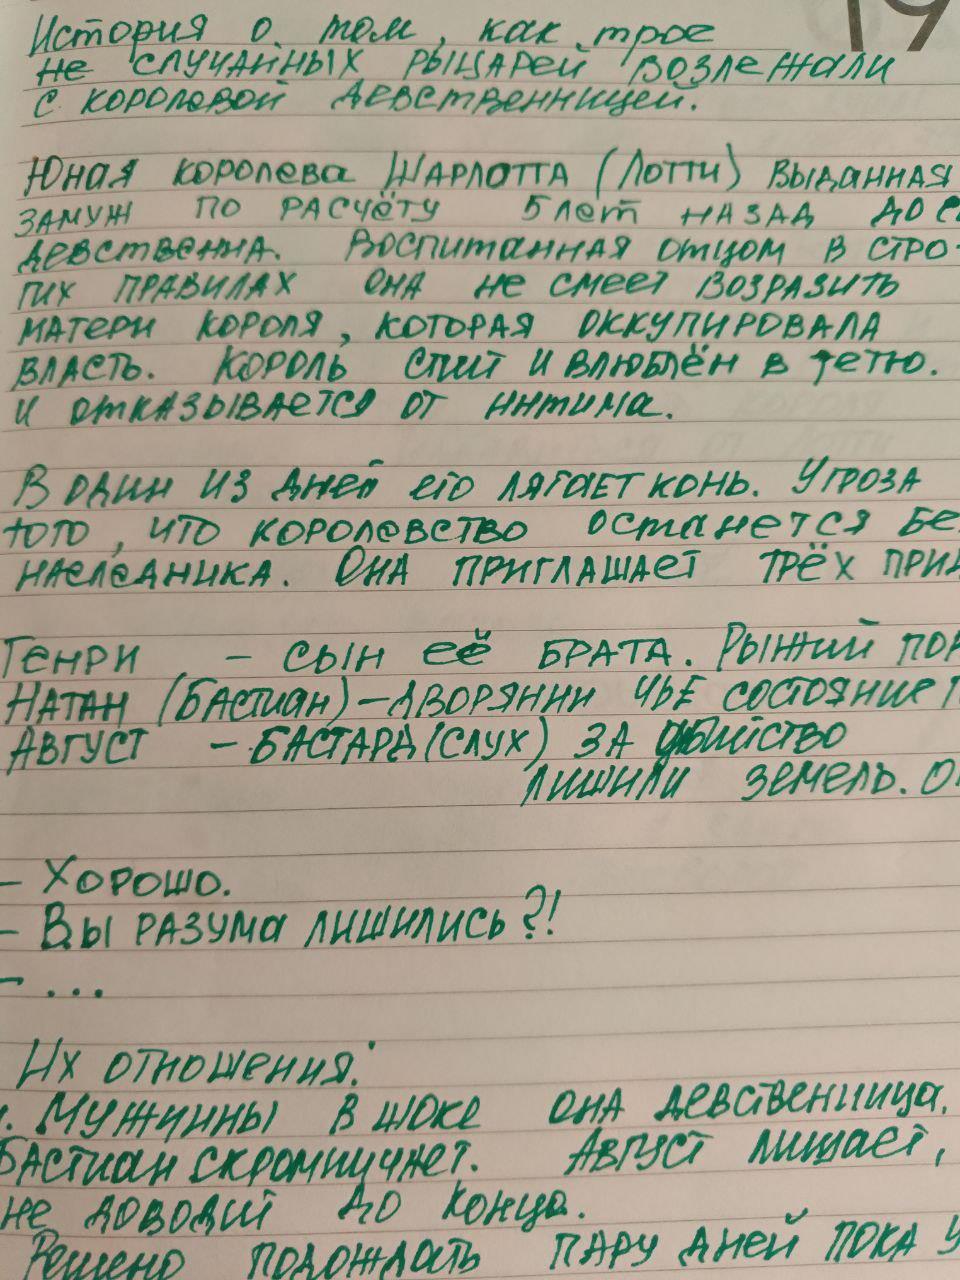 19
История о том, как трое
не случайных рыцарей возлежали
с королевой девственницей.
Юная королева Шарлотта (Лотти) выданная
замуж по расчёту 5 лет назад до с
девственна. Воспитанная отцом в стро-
гих правилах она не смеет возразить
матери короля, которая оккупировала
власть. Король спит и влюблён в тетю.
и отказывается от интима.
В один из дней его лягает конь. Угроза
того, что королевство останется бе
наследника. Она приглашает трёх при
Генри - сын её брата. Рыжий пор
Натан (Бастиан) - дворянин чьё состояние п
Август - бастард (слух) за убийство
лишили земель. О
- Хорошо.
- Вы разума лишились?!
- ...
Их отношения:
1. Мужчины в шоке она девственница.
Бастиан скромничает. Август лишает,
не доводит до конца.
Решено подождать пару дней пока у